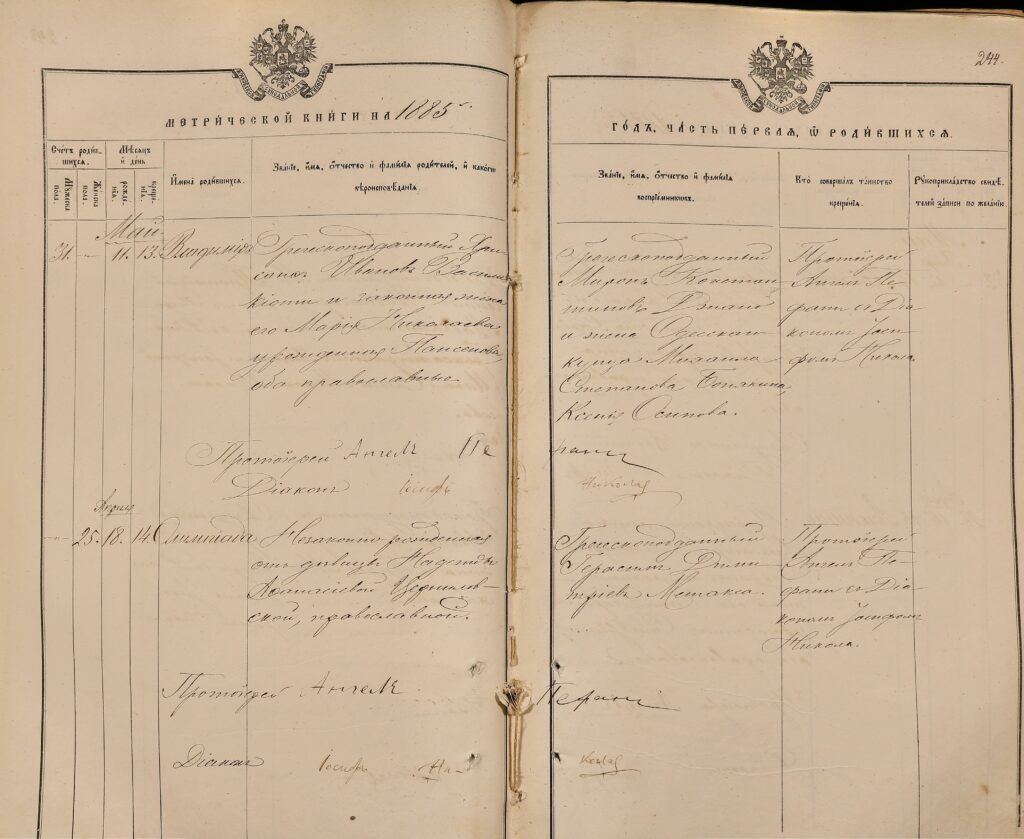 244.
МЕТРИЧЕСКОЙ КНИГИ НА 1885
ГОДЪ, ЧАСТЬ ПЕРВАЯ, Ѡ РОДИВШИХСЯ.
Счетъ родив-
шихся.
Мѣсяцъ
и день
Мужеска
пола.
Женска
пола.
рожде-
нія.
креще-
нія.
Имена родившихся.
Званіе, имя, отчество и фамилія родителей, и какого
вѣроисповѣданія.
Званіе, имя, отчество и фамилія
воспріемниковъ.
Кто совершалъ таинство
крещенія.
Рукоприкладство свидѣ-
телей записи по желанію.
Май
31. 11. 13. Владиміръ
Греческоподданный Хри-
санѳъ Ивановъ Васили
кіоти и законная жена
его Марія Николаевна
урожденная
оба православные.
Греческоподданный
Миронъ Констан
тиновъ
и жена Одесскаго
купца Михаила
Степанова
Ксенія Осипова.
Протоіерей
Ангелъ Пе-
фани съ Діа-
кономъ Іоси-
фомъ Никола.
Протоіерей Ангелъ Пе
фани
Діаконъ Іосифъ
Николау
Апрѣля
25. 18. 14. Олимпіада
Незаконно-рожденная
отъ дѣвицы Надежды
Аѳанасіевой
ской, православной.
Греческоподданный
Герасимъ Дими
тріевъ Метакса.
Протоіерей
Ангелъ Пе-
фани съ Діа-
кономъ Іосифомъ
Никола.
Протоіерей Ангелъ Пефани
Діаконъ Іосифъ Ни-
колау